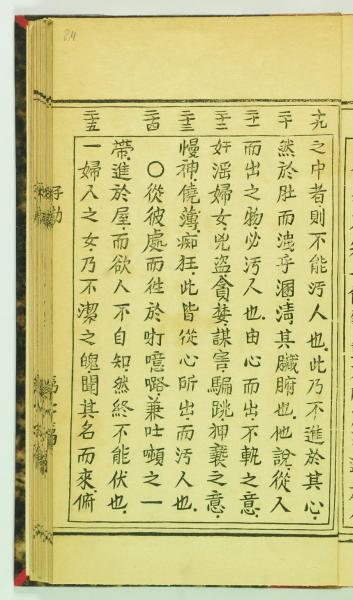 24
十九 二十 二十一 二十二 二十三 二十四 二十五
之中者則不能污人也此乃不進於其心
然於肚而洩乎溷清其臟腑也他說從人
而出之物必污人也由心而出不軌之意
奸滛婦女兇盜貪婪謀害騙跳狎褻之意
慢神僥薄痴狂此皆從心所出而污人也
○從彼處而徃於咑噫咯兼吐噸之一
帶進於屋而欲人不自知然終不能伏也
一婦人之女乃不潔之魄聞其名而來俯